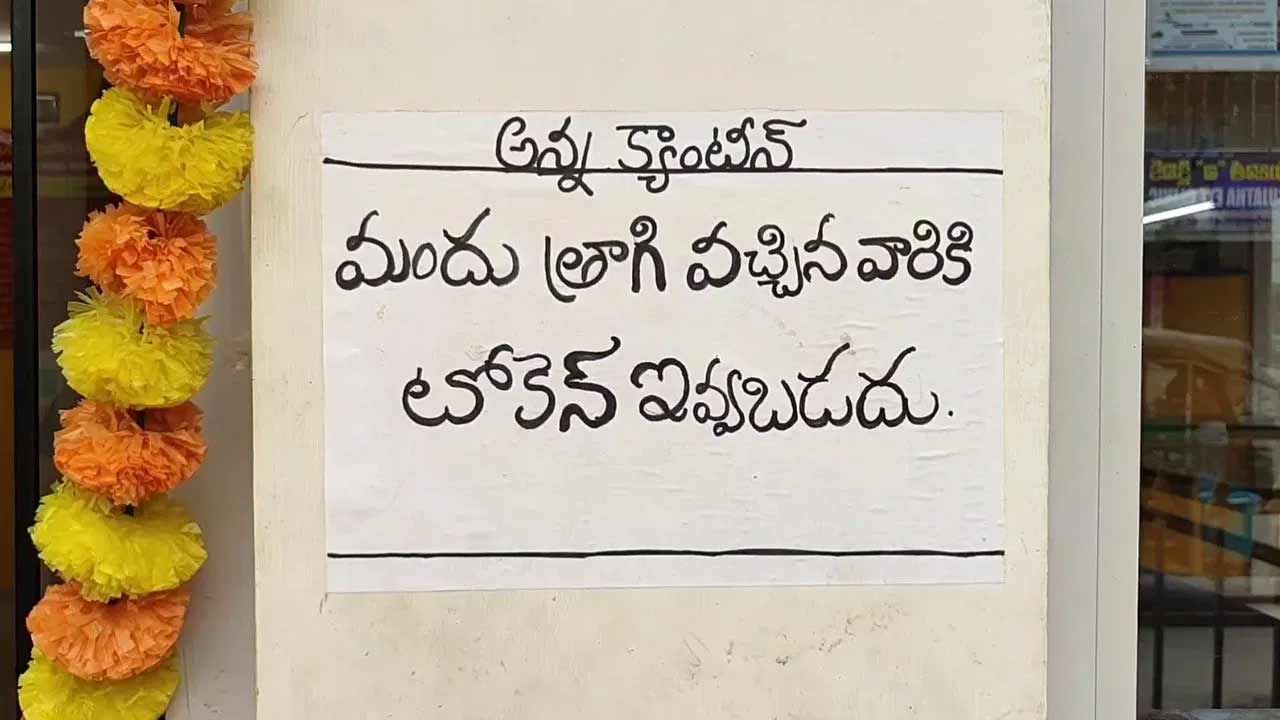 అన్న క్యాంటీన్
మందు త్రాగి వచ్చిన వారికి
టోకెన్ ఇవ్వబడదు.